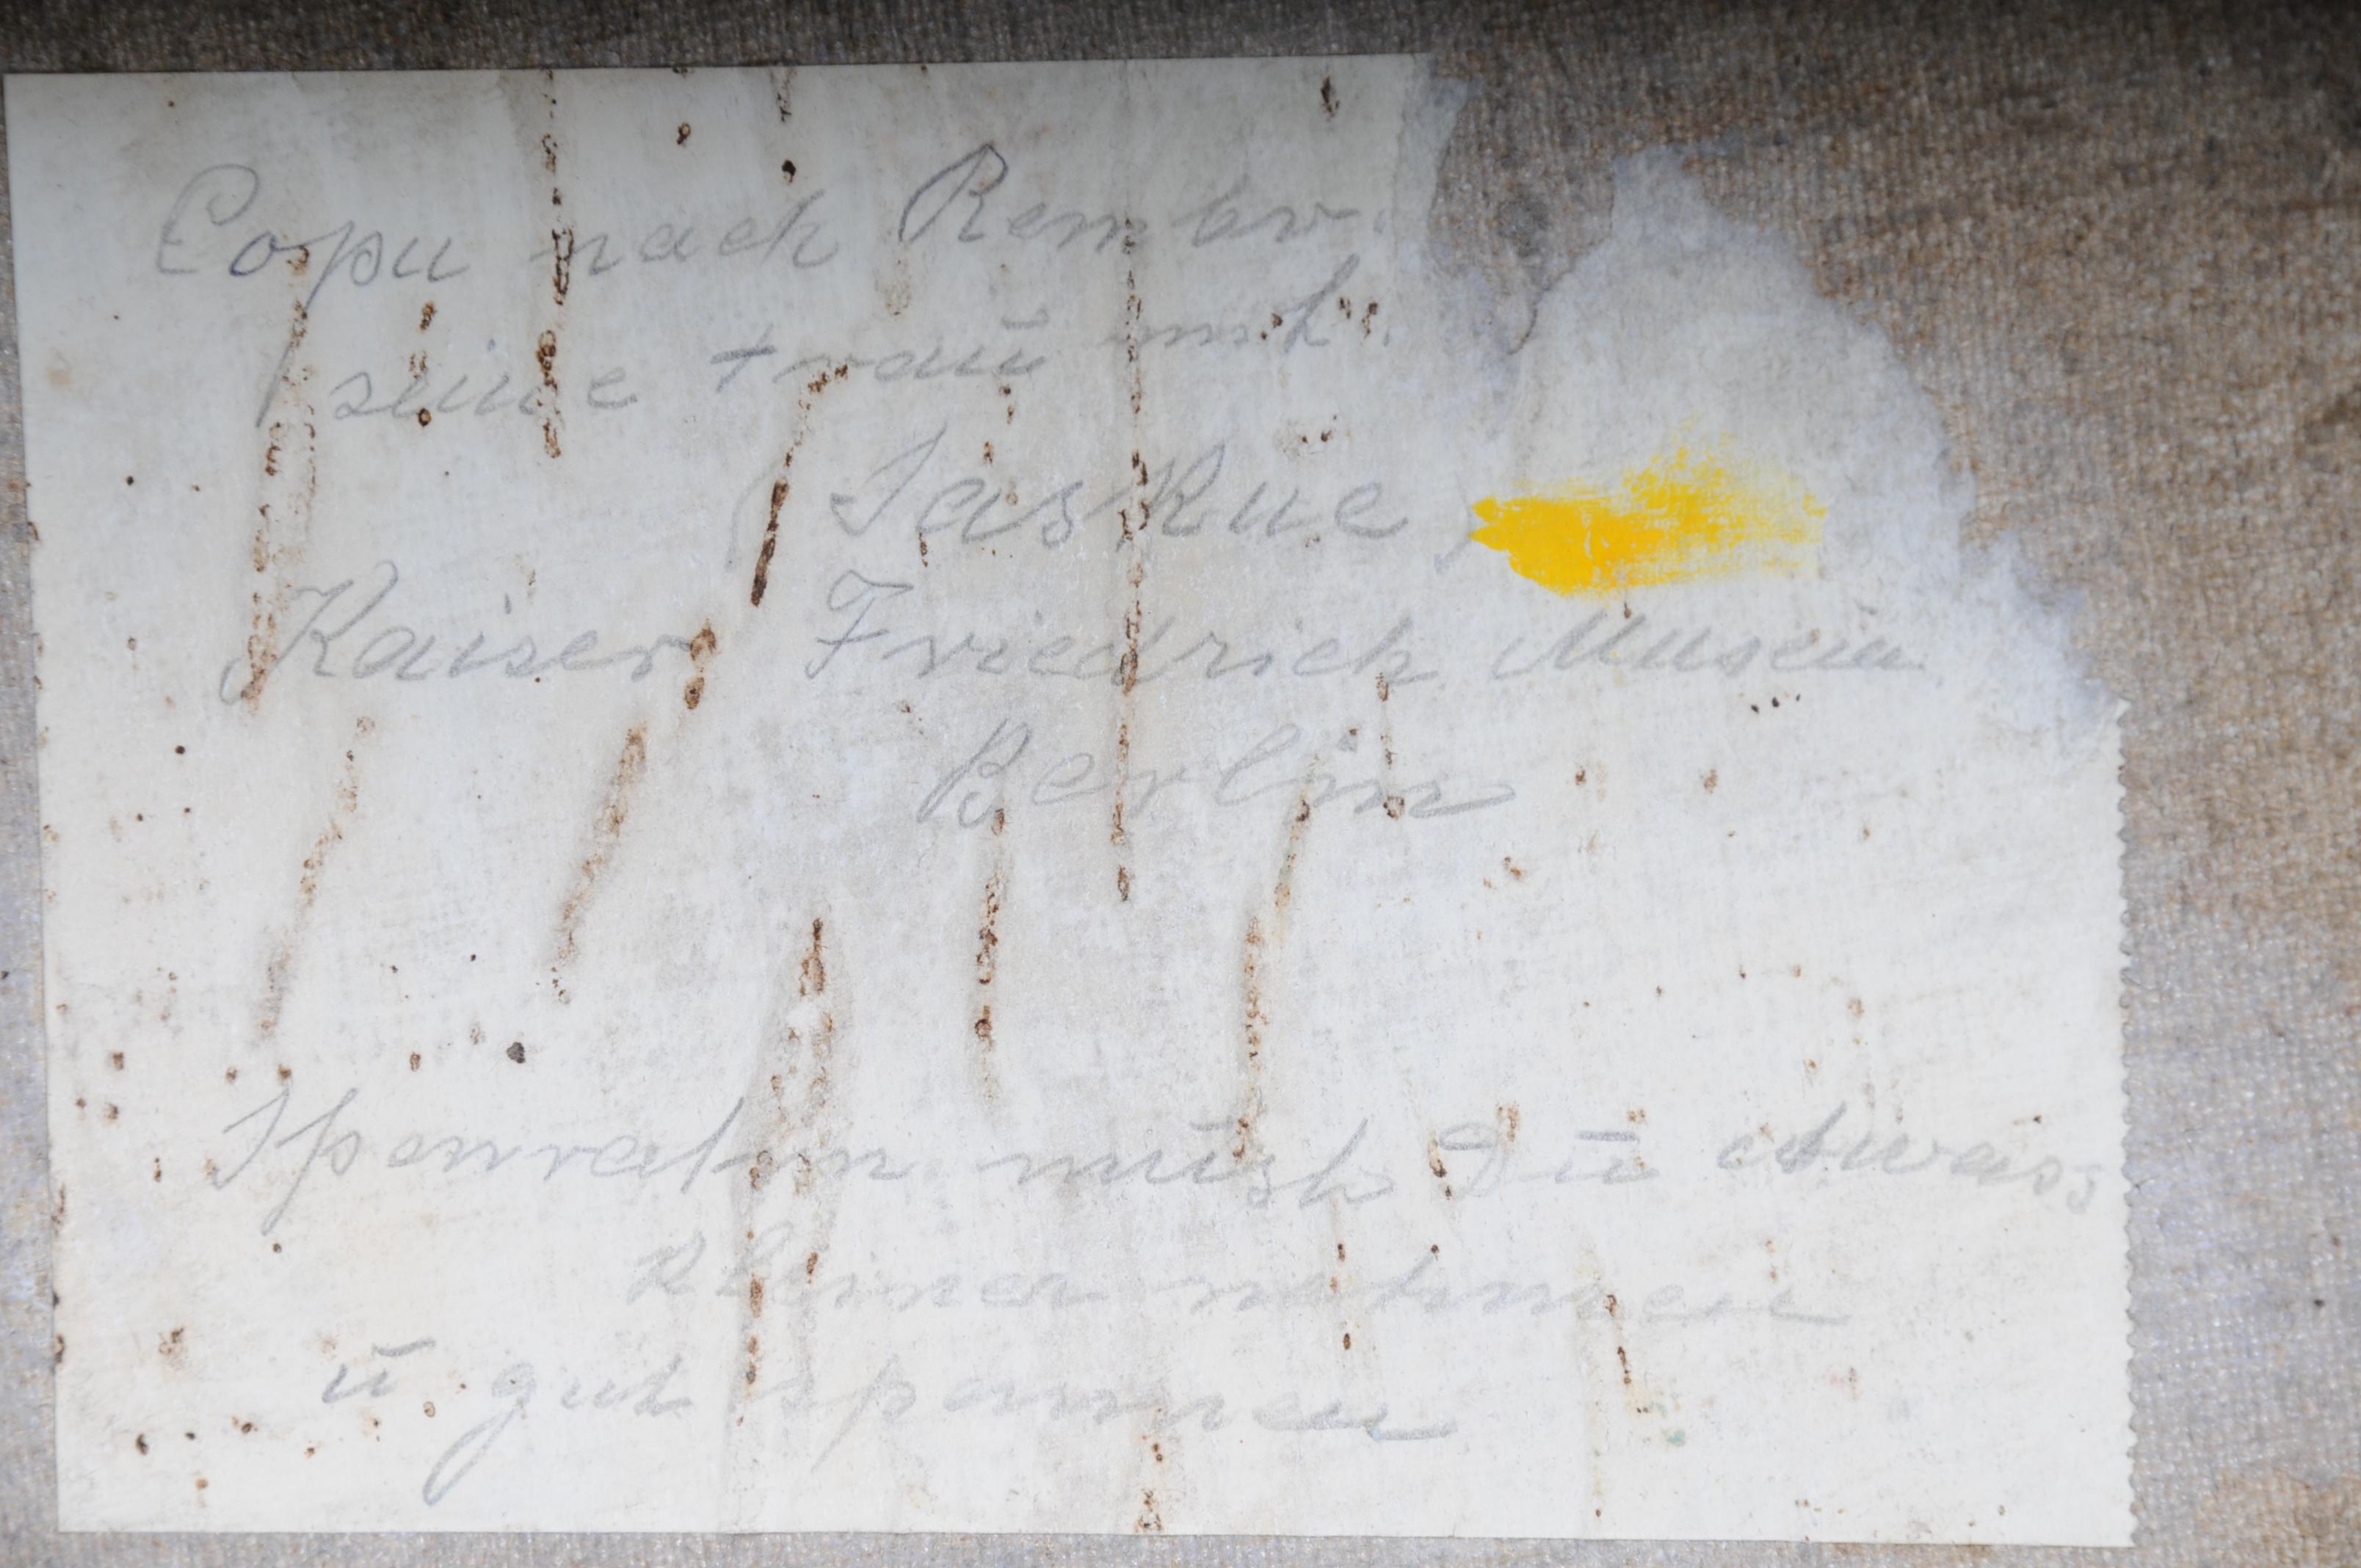 Copu nach Rembr.
seine Frau mit
(Saskue)
Kaiser Friedrich Museu
Berlin
Spannrahm müsst Dū etwass
kleiner nehmen
ū gut spannen